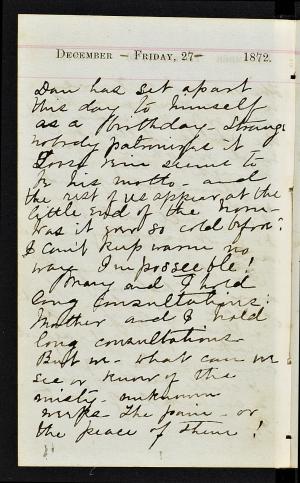 DECEMBER - FRIDAY, 27- 1872.
Dan has set apart
this day to himself
as a birthday - Strange
nobody patronizes it
seems to
be his motto - and
the rest of us appear at the
little end of the horn -
was it ever so cold before?
I can't keep warm no
way Impossible!
Mary and I hold
long consultations:
Mother and I hold
long consultations -
But we - what can we
see or know of the
misty - unknown
The pain - or
the peace of them!